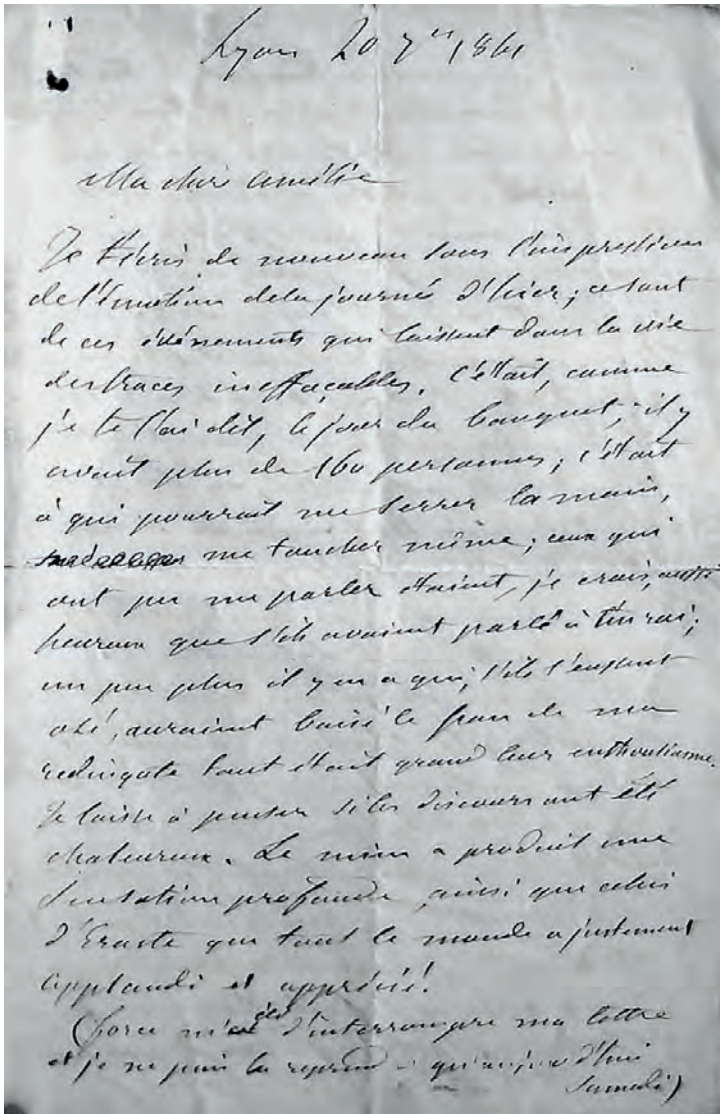 Lyon 20 7bre 1861
Ma chère Amélie
Je t'écris de nouveau sous l'impression
de l'émotion de la journée d'hier; ce sont
de ces événements qui laissent dans la vie
des traces ineffaçables. C'était, comme
je te l'ai dit, le jour du banquet; il y
avait plus de 160 personnes; c'était
à qui pourrait me serrer la main,
me toucher même; ceux qui
ont pu me parler étaient, je crois, aussi
heureux que s'ils avaient parlé à un roi;
un peu plus il y en a qui, s'ils l'eussent
osé, auraient baisé le pan de ma
redingote tant était grand leur enthousiasme.
Je laisse à penser si les discours ont été
chaleureux. Le mien a produit une
sensation profonde ainsi que celui
d'Eraste que tout le monde a justement
applaudi et apprécié!
(force m'a été d'interrompre ma lettre
et je ne puis la reprendre qu'aujourd'hui
Samedi)